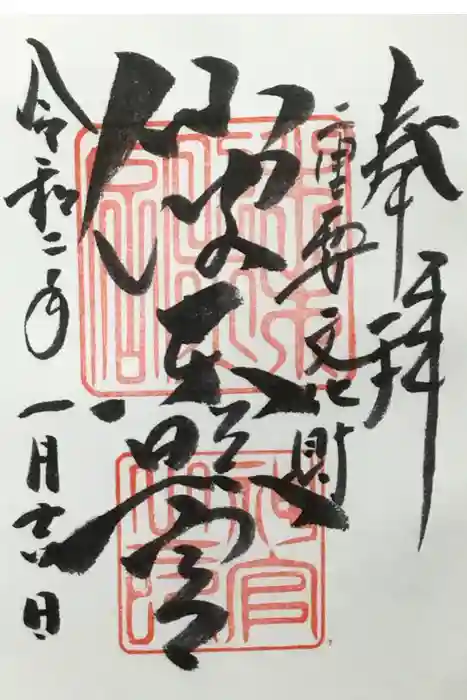 奉拝
重要文化財
仙波東照宮
令和二年一月十六日